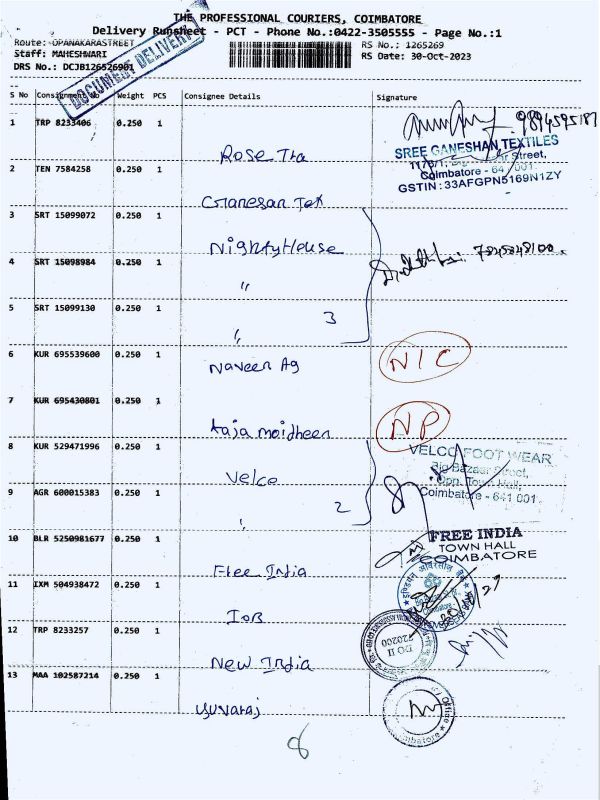 THE PROFESSIONAL COURIERS, COIMBATORE
Delivery Runsheet - PCT - Phone No.:0422-3505555 - Page No.:1
Route: OPANAKARASTREET
RS No.: 1265269
Staff: MAHESHWARI
RS Date: 30-Oct-2023
DRS No.: DCJB126526901
DOCUMENT DELIVERY
S No Consignment No Weight PCS Consignee Details Signature
1 TRP 8233406 0.250 1
Rose Tra
9894595187
SREE GANESHAN TEXTILES
Street,
Coimbatore - 641 001.
GSTIN : 33AFGPN5169N1ZY
2 TEN 7584258 0.250 1
Ganesan Tex
3 SRT 15099072 0.250 1
Nighty House
4 SRT 15098984 0.250 1
"
5 SRT 15099130 0.250 1
" 3
6 KUR 695539600 0.250 1
Naveen Ag
N/C
7 KUR 695430801 0.250 1
Raja moidheen
NP
8 KUR 529471996 0.250 1
Velco
VELCO FOOT WEAR
Big Bazaar Street,
Opp. Town Hall,
Coimbatore - 641 001.
9 AGR 600015383 0.250 1
" 2
10 BLR 5250981677 0.250 1
Free India
FREE INDIA
TOWN HALL
COIMBATORE
11 IXM 504938472 0.250 1
IOB
12 TRP 8233257 0.250 1
New India
DO II
720200
13 MAA 102587214 0.250 1
yuvaraj
Office
Coimbatore
8